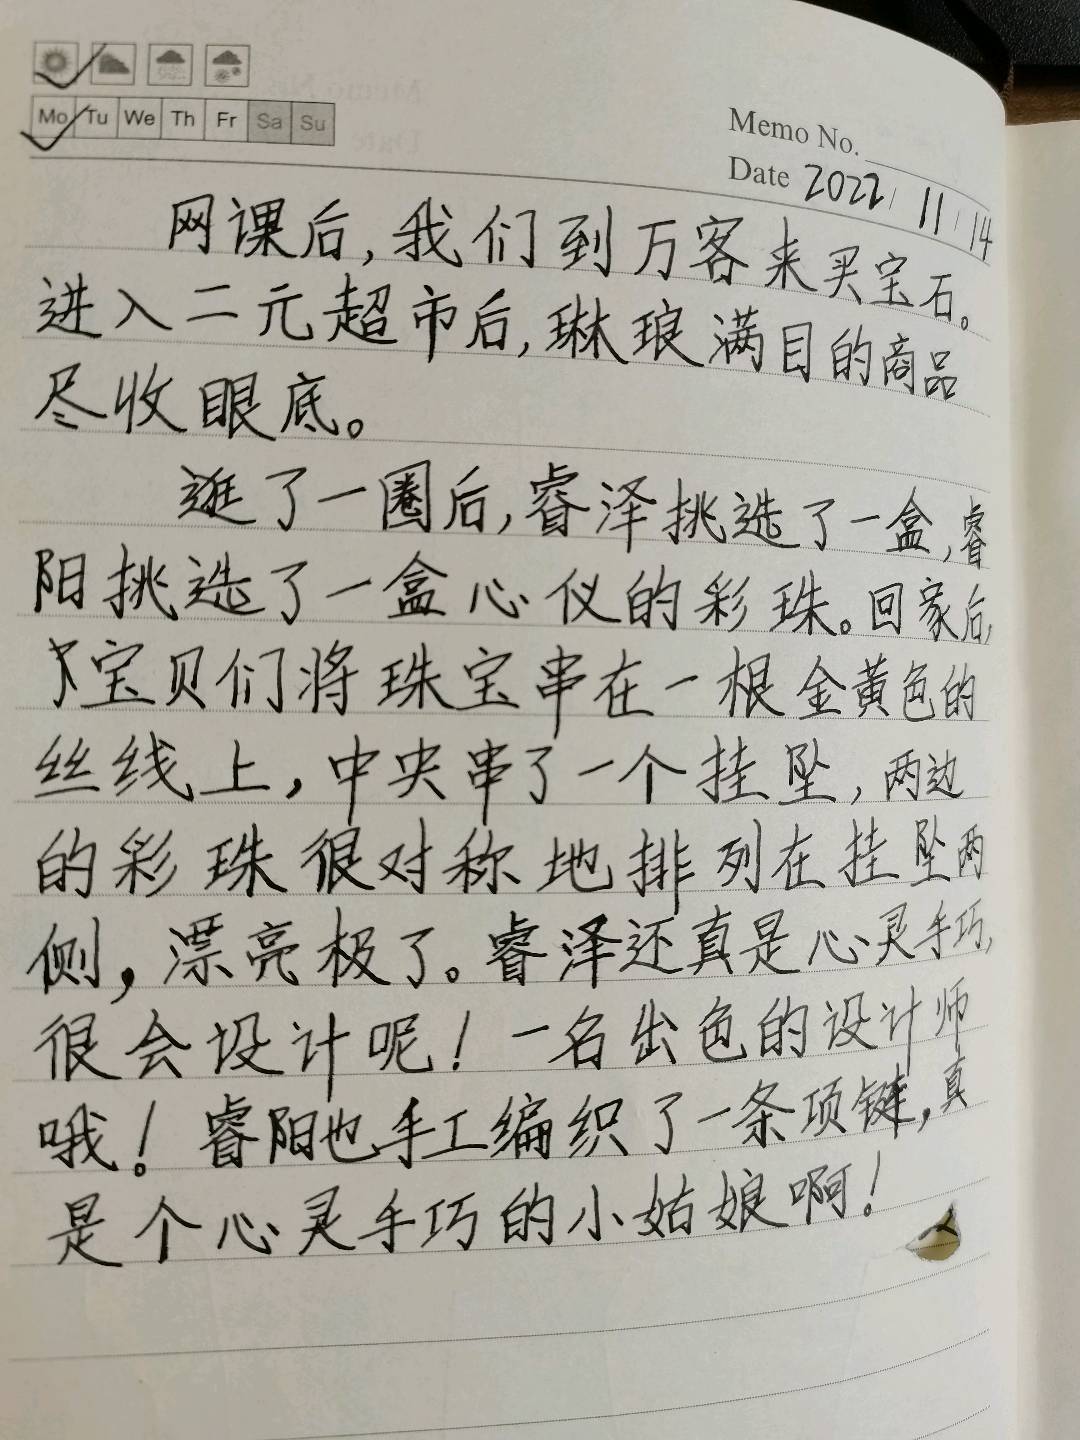 Mo Tu We Th Fr Sa Su
Memo No.
Date 2022 11 14
网课后,我们到万客来买宝石。
进入二元超市后,琳琅满目的商品
尽收眼底。
逛了一圈后,睿泽挑选了一盒,睿
阳挑选了一盒心仪的彩珠。回家后,
宝贝们将珠宝串在一根金黄色的
丝线上,中央串了一个挂坠,两边
的彩珠很对称地排列在挂坠两
侧,漂亮极了。睿泽还真是心灵手巧,
很会设计呢!一名出色的设计师
哦!睿阳也手工编织了一条项链,真
是个心灵手巧的小姑娘啊!